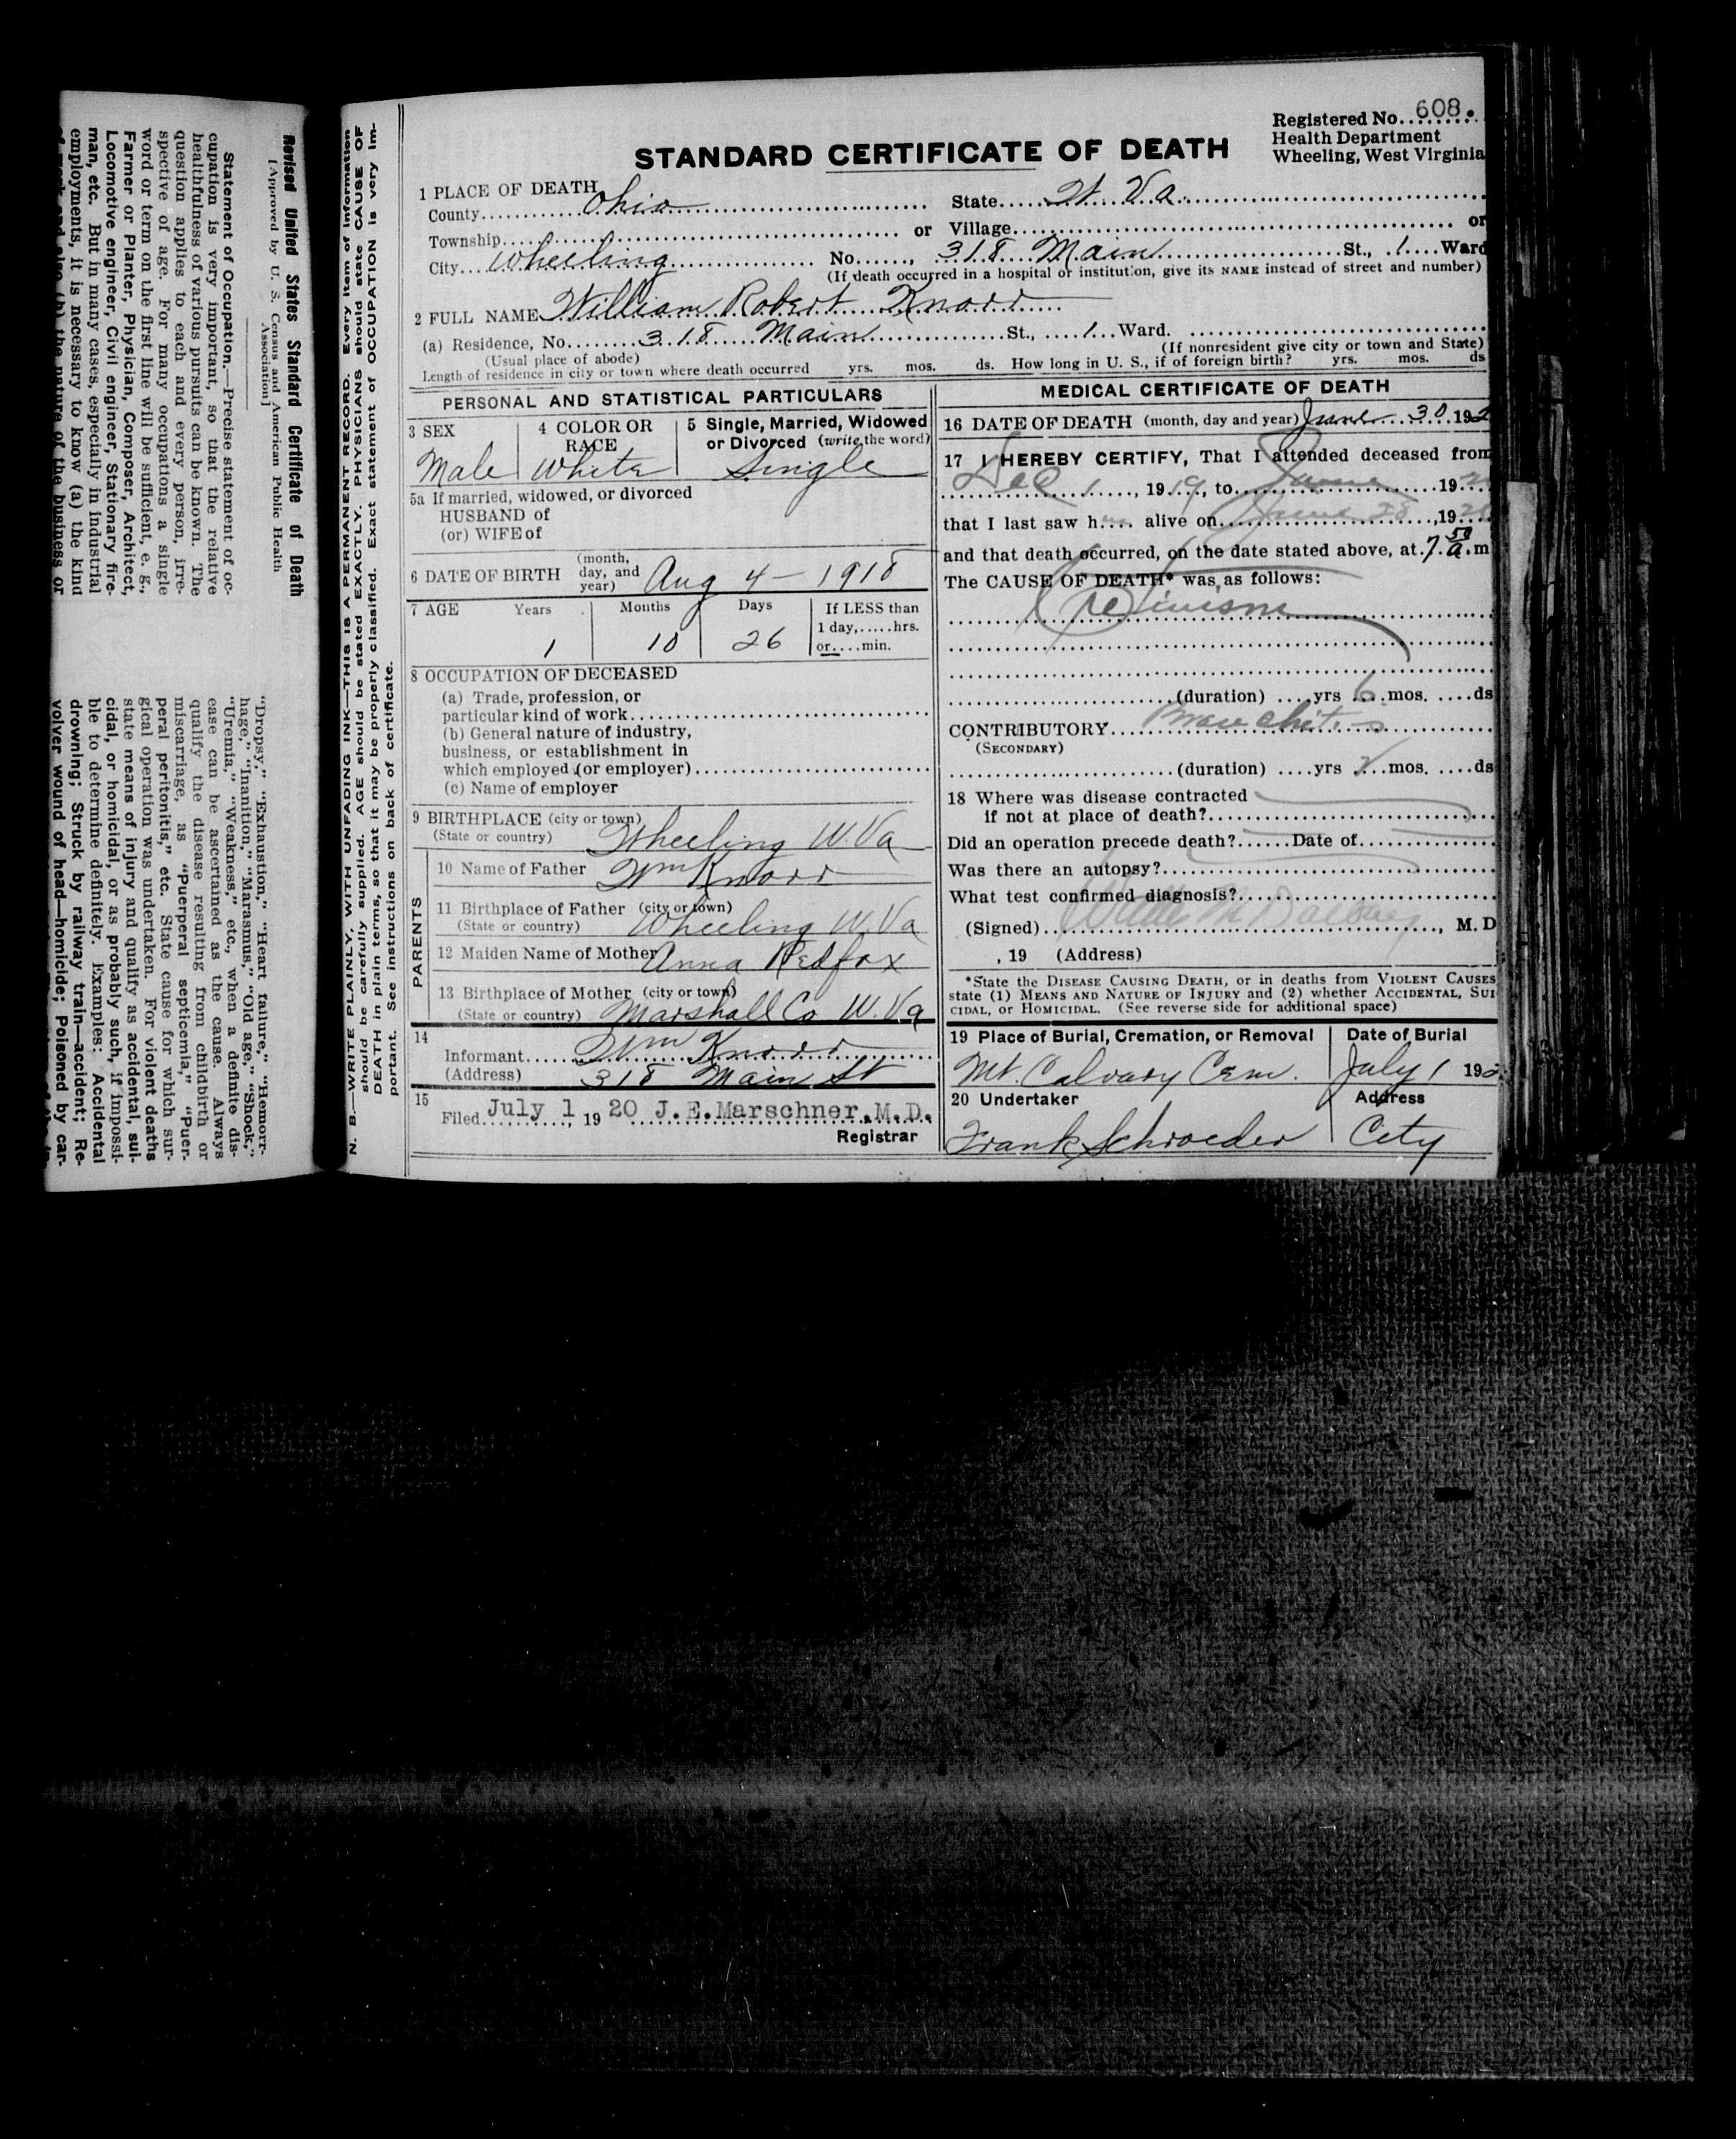 Registered No. 608.
Health Department
Wheeling, West Virginia
STANDARD CERTIFICATE OF DEATH
1 PLACE OF DEATH
County Ohio State W. Va.
Township or Village or
City Wheeling No. 318 Main St., 1 Ward
(If death occurred in a hospital or institution, give its NAME instead of street and number)
2 FULL NAME William Robert Knorr
(a) Residence, No. 318 Main St., 1 Ward.
(Usual place of abode) (If nonresident give city or town and State)
Length of residence in city or town where death occurred yrs. mos. ds. How long in U. S., if of foreign birth? yrs. mos. ds
PERSONAL AND STATISTICAL PARTICULARS
3 SEX
Male
4 COLOR OR RACE
White
5 Single, Married, Widowed
or Divorced (write the word)
Single
5a If married, widowed, or divorced
HUSBAND of
(or) WIFE of
6 DATE OF BIRTH (month, day, and year) Aug 4 - 1918
7 AGE Years Months Days If LESS than
1 day,.....hrs.
or....min.
1 10 26
8 OCCUPATION OF DECEASED
(a) Trade, profession, or
particular kind of work
(b) General nature of industry,
business, or establishment in
which employed (or employer)
(c) Name of employer
9 BIRTHPLACE (city or town)
(State or country) Wheeling W. Va
PARENTS
10 Name of Father Wm Knorr
11 Birthplace of Father (city or town)
(State or country) Wheeling W. Va
12 Maiden Name of Mother Anna Redfox
13 Birthplace of Mother (city or town)
(State or country) Marshall Co W. Va
14
Informant Wm Knorr
(Address) 318 Main St
15
Filed July 1, 19 20 J. E. Marschner, M.D.
Registrar
MEDICAL CERTIFICATE OF DEATH
16 DATE OF DEATH (month, day and year) June 30 192
17 I HEREBY CERTIFY, That I attended deceased from
Dec 1, 1919, to June 192
that I last saw h alive on June 28, 1920
and that death occurred, on the date stated above, at 7.50 a.m
The CAUSE OF DEATH* was as follows:
Cretinism
(duration) yrs 6 mos. ds
CONTRIBUTORY Bronchitis
(SECONDARY)
(duration) yrs mos. ds
18 Where was disease contracted
if not at place of death?
Did an operation precede death? Date of
Was there an autopsy?
What test confirmed diagnosis?
(Signed) , M. D
, 19 (Address)
*State the DISEASE CAUSING DEATH, or in deaths from VIOLENT CAUSES
state (1) MEANS AND NATURE OF INJURY and (2) whether ACCIDENTAL, SUI
CIDAL, or HOMICIDAL. (See reverse side for additional space)
19 Place of Burial, Cremation, or Removal
Mt. Calvary Cem.
Date of Burial
July 1 192
20 Undertaker
Frank Schroeder
Address
City
N. B.—WRITE PLAINLY, WITH UNFADING INK—THIS IS A PERMANENT RECORD. Every item of information
should be carefully supplied. AGE should be stated EXACTLY. PHYSICIANS should state CAUSE OF
DEATH in plain terms, so that it may be properly classified. Exact statement of OCCUPATION is very im-
portant. See instructions on back of certificate.
Revised United States Standard Certificate of Death
[Approved by U. S. Census and American Public Health
Association]
Statement of Occupation.—Precise statement of oc-
cupation is very important, so that the relative
healthfulness of various pursuits can be known. The
question applies to each and every person, irre-
spective of age. For many occupations a single
word or term on the first line will be sufficient, e. g.,
Farmer or Planter, Physician, Composer, Architect,
Locomotive engineer, Civil engineer, Stationary fire-
man, etc. But in many cases, especially in industrial
employments, it is necessary to know (a) the kind
of work and also (b) the nature of the business or
"Dropsy," "Exhaustion," "Heart failure," "Hemorr-
hage," "Inanition," "Marasmus," "Old age," "Shock,"
"Uremia," "Weakness," etc., when a definite dis-
ease can be ascertained as the cause. Always
qualify the disease resulting from childbirth or
miscarriage, as "Puerperal septicemia," "Puer-
peral peritonitis," etc. State cause for which sur-
gical operation was undertaken. For violent deaths
state means of injury and qualify as accidental, sui-
cidal, or homicidal, or as probably such, if impossi-
ble to determine definitely. Examples: Accidental
drowning; Struck by railway train—accident; Re-
volver wound of head—homicide; Poisoned by car-